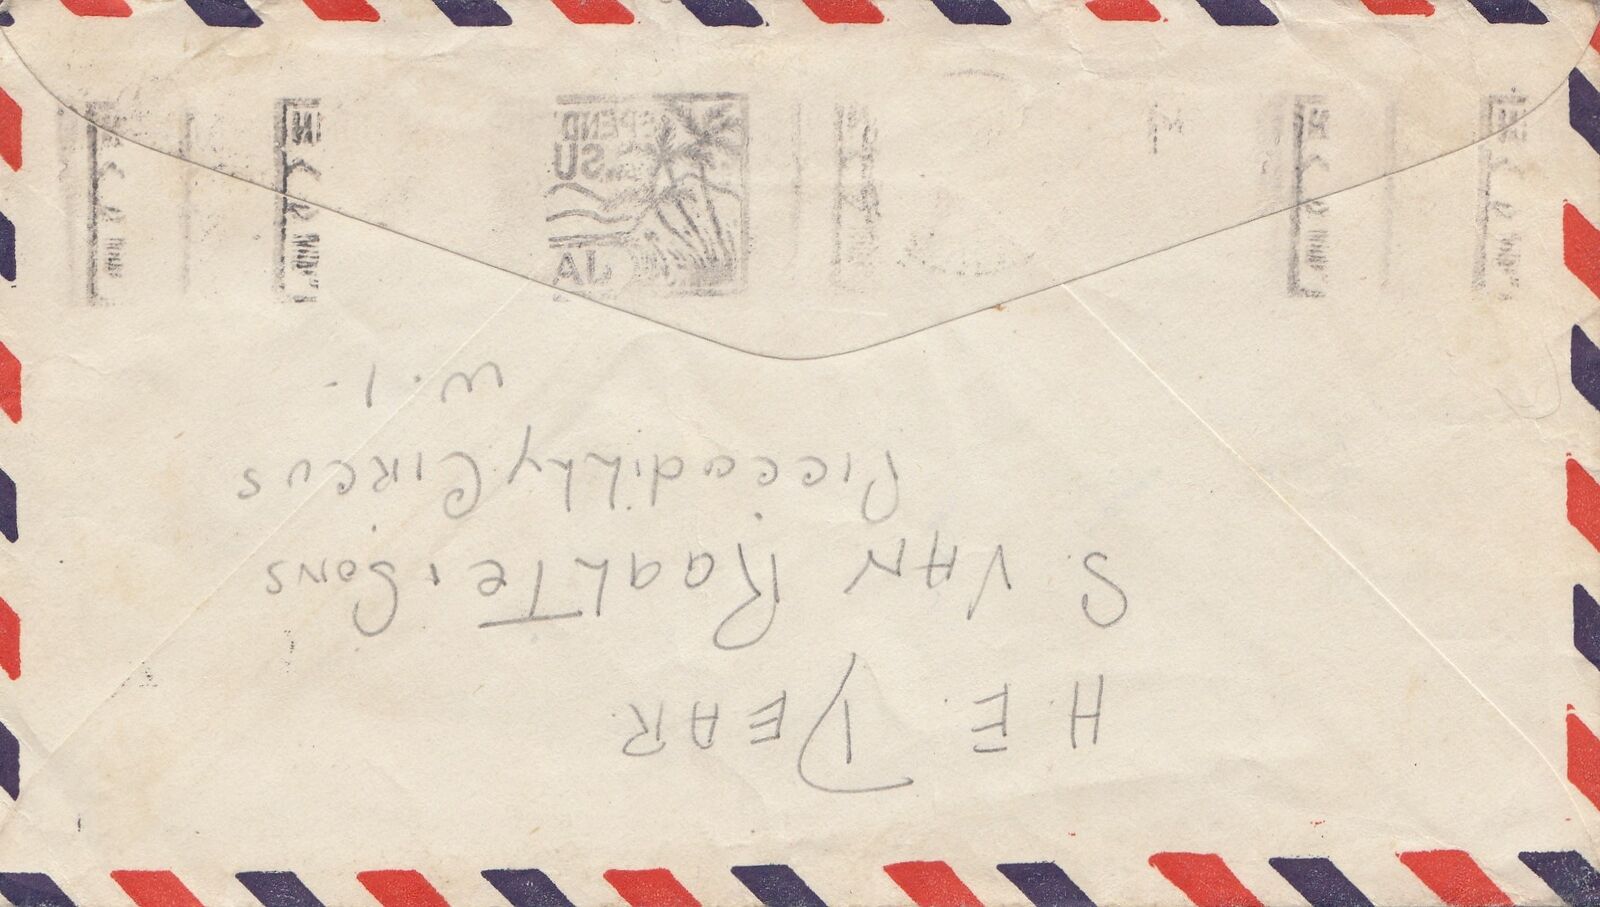 H.E. DEAR
S. VAN RaaLTE & Sons
PiccadiLLy CiRcus
W.1.
PEND
SU
JA